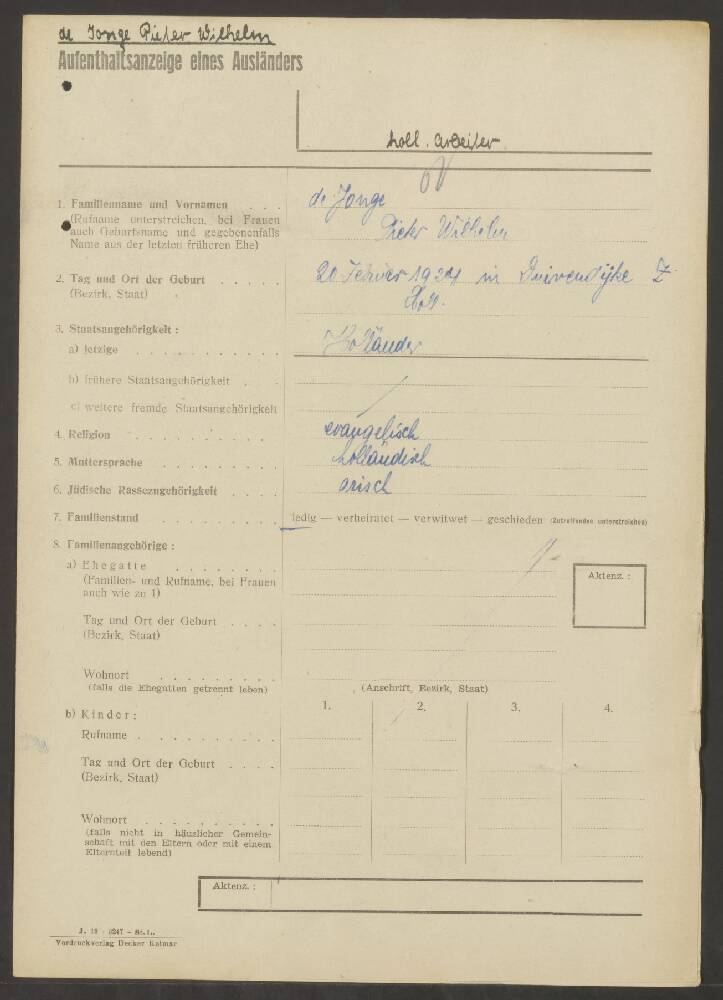 de Jonge Pieter Wilhelm
Aufenthaltsanzeige eines Ausländers
holl. Arbeiter
1. Familienname und Vornamen . . .
(Rufname unterstreichen, bei Frauen
auch Geburtsname und gegebenenfalls
Name aus der letzten früheren Ehe)
de Jonge
Pieter Wilhelm
2. Tag und Ort der Geburt . . . . .
(Bezirk, Staat)
20 1924 in Duivendijke Z.
Holl.
3. Staatsangehörigkeit :
a) jetzige . . . . . . . . . . .
Holländer
b) frühere Staatsangehörigkeit . .
c) weitere fremde Staatsangehörigkeit
4. Religion . . . . . . . . . .
evangelisch
5. Muttersprache . . . . . . . .
holländisch
6. Jüdische Rassezugehörigkeit . . . .
arisch
7. Familienstand . . . . . . . .
ledig — verheiratet — verwitwet — geschieden (Zutreffendes unterstreichen)
8. Familienangehörige :
a) Ehegatte . . . . . . . .
(Familien- und Rufname, bei Frauen
auch wie zu 1)
Aktenz. :
Tag und Ort der Geburt . . . .
(Bezirk, Staat)
Wohnort . . . . . . . . .
(falls die Ehegatten getrennt leben)
(Anschrift, Bezirk, Staat)
b) Kinder:
1. 2. 3. 4.
Rufname . . . . . . . . . .
Tag und Ort der Geburt . . . .
(Bezirk, Staat)
Wohnort . . . . . . . . . .
(falls nicht in häuslicher Gemein-
schaft mit den Eltern oder mit einem
Elternteil lebend)
Aktenz. :
Vordruckverlag Decker Kolmar